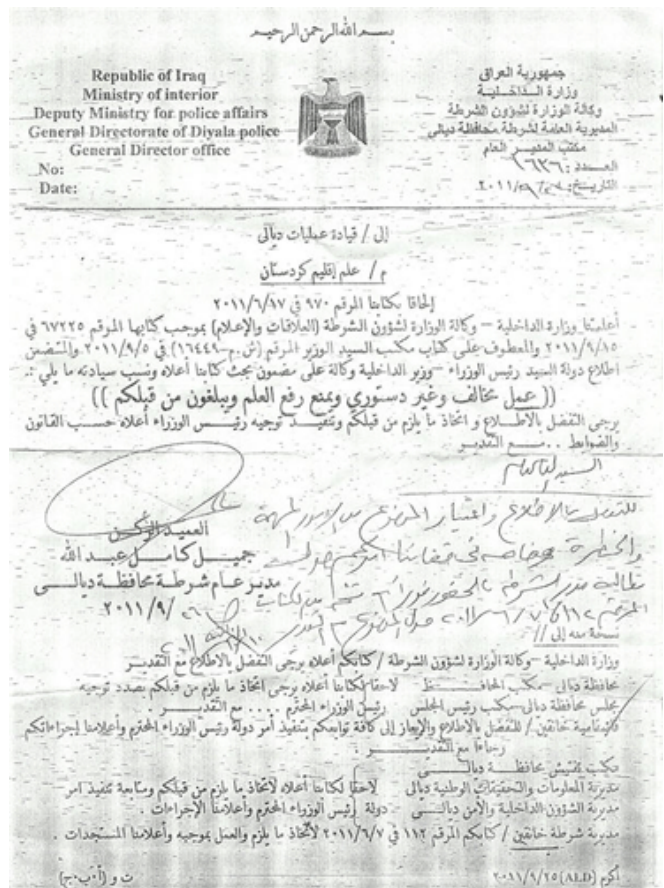 بسم الله الرحمن الرحيم
Republic of Iraq
Ministry of interior
Deputy Ministry for police affairs
General Directorate of Diyala police
General Director office
No:
Date:
جمهورية العراق
وزارة الداخلية
وكالة الوزارة لشؤون الشرطة
المديرية العامة لشرطة محافظة ديالى
مكتب المدير العام
العدد:
التاريخ: ٢٠١١/
إلى / قيادة عمليات ديالى
م / علم إقليم كردستان
إلحاقا بكتابنا المرقم ٩٧٠ في
أعلمتنا وزارة الداخلية – وكالة الوزارة لشؤون الشرطة (العلاقات والإعلام) بموجب كتابها المرقم ٦٧٢٢٥ في
٢٠١١/٩/١٥ والمعطوف على كتاب مكتب السيد الوزير المرقم (ش.م-١٦٤٤٩) في ٢٠١١/٩/٥ والمتضمن
اطلاع دولة السيد رئيس الوزراء – وزير الداخلية وكالة على مضمون بحث كتابنا أعلاه ونسب سيادته ما يلي :.
(( عمل مخالف وغير دستوري ويمنع رفع العلم ويبلغون من قبلكم ))
يرجى التفضل بالاطلاع و اتخاذ ما يلزم من قبلكم وتنفيذ توجيه رئيس الوزراء أعلاه حسب القانون
والضوابط .. مع التقدير
للتفضل بالاطلاع واعتبار الموضوع من الامور المهمة
العميد الركن
جميل كامل عبد الله
مدير عام شرطة محافظة ديالى
٢٠١١/٩/
نسخة منه إلى //
وزارة الداخلية – وكالة الوزارة لشؤون الشرطة / كتابكم أعلاه يرجى التفضل بالاطلاع مع التقدير
محافظة ديالى – مكتب المحافظ لاحقا لكتابنا أعلاه يرجى اتخاذ ما يلزم من قبلكم بصدد توجيه
مجلس محافظة ديالى – مكتب رئيس المجلس رئيس الوزراء المحترم .... مع التقدير .
قائمقامية خانقين / للتفضل بالاطلاع والإيعاز إلى كافة توابعكم بتنفيذ أمر دولة رئيس الوزراء المحترم وأعلامنا إجراءاتكم
رجاءا مع التقدير .
مكتب تفتيش محافظة ديالى
مديرية المعلومات والتحقيقات الوطنية ديالى لاحقا لكتابنا أعلاه لاتخاذ ما يلزم من قبلكم ومتابعة تنفيذ أمر
مديرية الشؤون الداخلية والأمن ديالى دولة رئيس الوزراء المحترم وأعلامنا الإجراءات .
مديرية شرطة خانقين / كتابكم المرقم ١١٢ في ٢٠١١/٦/٧ لاتخاذ ما يلزم والعمل بموجبه وأعلامنا المستجدات .
أكرم (ALD) ٢٠١١/٩/٢٥